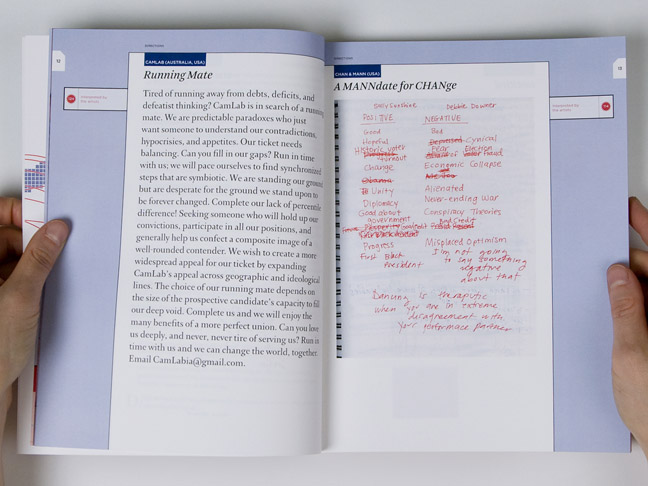 DIRECTIONS
12
CAMLAB (AUSTRALIA, USA)
Running Mate
Tired of running away from debts, deficits, and
defeatist thinking? CamLab is in search of a running
mate. We are predictable paradoxes who just
want someone to understand our contradictions,
hypocrisies, and appetites. Our ticket needs
balancing. Can you fill in our gaps? Run in time
with us; we will pace ourselves to find synchronized
steps that are symbiotic. We are standing our ground
but are desperate for the ground we stand upon to
be forever changed. Complete our lack of percentile
difference! Seeking someone who will hold up our
convictions, participate in all our positions, and
generally help us confect a composite image of a
well-rounded contender. We wish to create a more
widespread appeal for our ticket by expanding
CamLab's appeal across geographic and ideological
lines. The choice of our running mate depends on
the size of the prospective candidate's capacity to fill
our deep void. Complete us and we will enjoy the
many benefits of a more perfect union. Can you love
us deeply, and never, never tire of serving us? Run in
time with us and we can change the world, together.
Email CamLabia@gmail.com.
DIRECTIONS
13
CHAN & MANN (USA)
A MANNdate for CHANge
Susy Sunshine Debbie Downer
POSITIVE NEGATIVE
Good Bad
Hopeful Depressed Cynical
Historic voter Fear Election
turnout of voter Fraud
Change Economic Collapse
Obama
Unity Alienated
Diplomacy Never-ending War
Good about Conspiracy Theories
government and Credit
Prosperity
Progress Misplaced Optimism
First Black I'm not going
President to say something
negative
about that
Dancing is theraputic
when you are in extreme
disagreement with
your performace partner